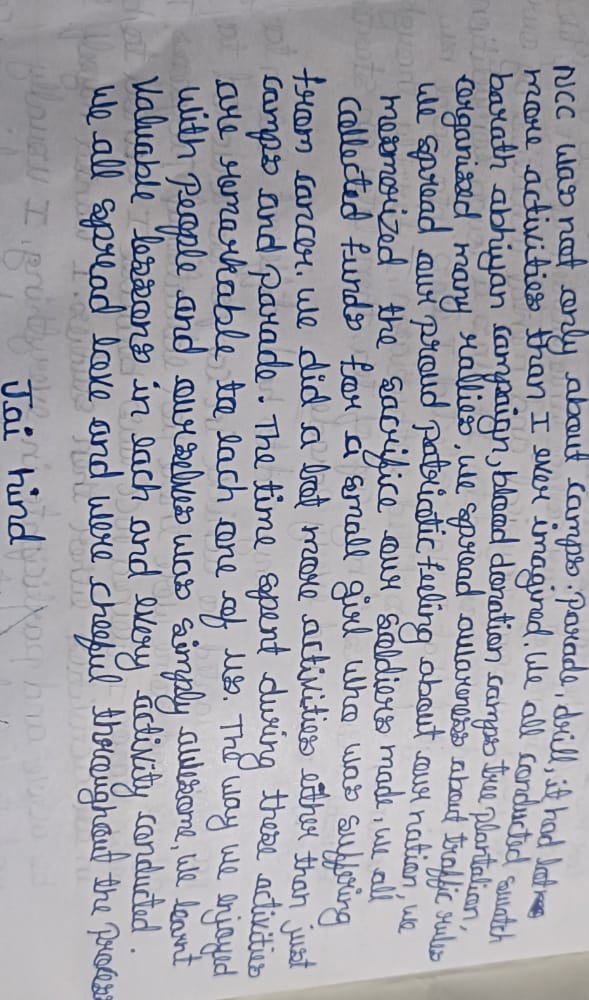 NCC was not only about camps, parade, drill, it had lot
more activities than I ever imagined. We all conducted swatch
barath abhiyan campaign, blood donation camps tree plantation,
organised many rallies, we spread awareness about traffic rules
we spread our proud patriotic feeling about our nation, we
mesmorized the sacrifice our soldiers made, we all
collected funds for a small girl who was suffering
from cancer. we did a lot more activities other than just
camps and parade. The time spent during these activities
are remarkable to each one of us. The way we enjoyed
with people and ourselves was simply awesome, we learnt
valuable lessons in each and every activity conducted.
We all spread love and were cheeful throughout the process
Jai hind